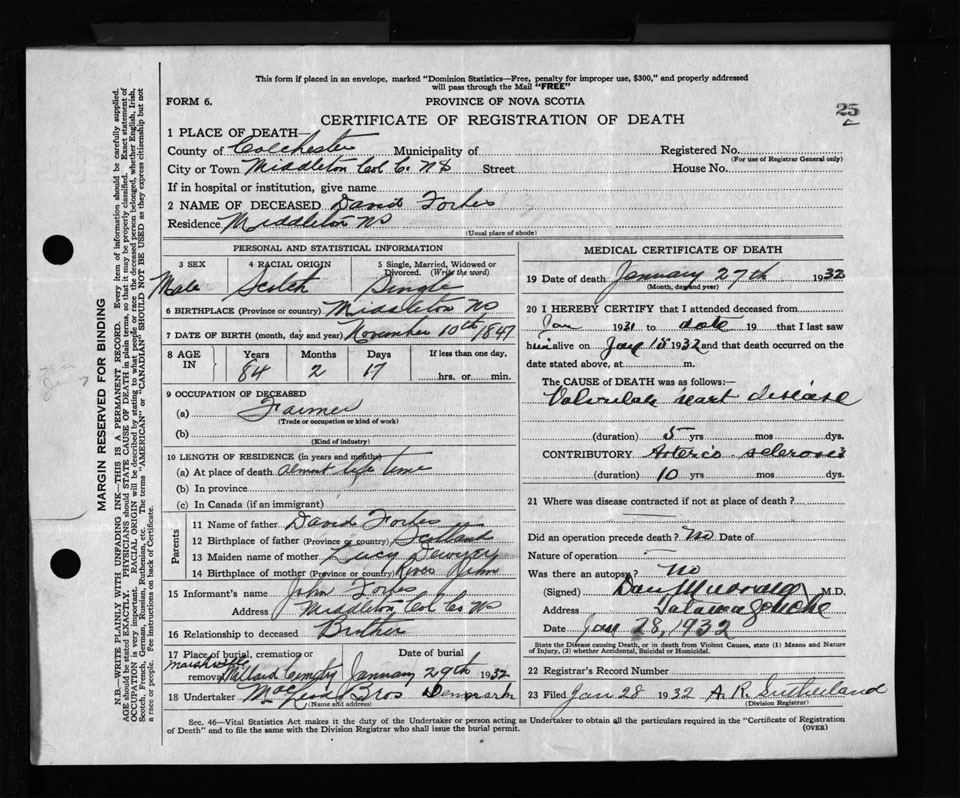 This form if placed in an envelope, marked "Dominion Statistics—Free, penalty for improper use, $300," and properly addressed
will pass through the Mail "FREE"
FORM 6.
PROVINCE OF NOVA SCOTIA
25
CERTIFICATE OF REGISTRATION OF DEATH
MARGIN RESERVED FOR BINDING
N.B.—WRITE PLAINLY WITH UNFADING INK—THIS IS A PERMANENT RECORD. Every item of information should be carefully supplied.
AGE should be stated EXACTLY. PHYSICIANS should STATE CAUSE OF DEATH in plain terms, so that it may be properly classified. Exact statement of
OCCUPATION is very important. RACIAL ORIGIN will be described by stating to what people or race the deceased person belonged, whether English, Irish,
Scotch, French, German, Russian, Ruthenian, etc. The terms "AMERICAN" or "CANADIAN" SHOULD NOT BE USED as they express citizenship but not
a race or people. See instructions on back of Certificate.
1 PLACE OF DEATH—
County of Colchester Municipality of Registered No.
(For use of Registrar General only)
City or Town Middleton Col C. NS Street House No.
If in hospital or institution, give name
2 NAME OF DECEASED David Forbes
Residence Middleton NS
(Usual place of abode)
PERSONAL AND STATISTICAL INFORMATION
3 SEX 4 RACIAL ORIGIN 5 Single, Married, Widowed or Divorced. (Write the word)
Male Scotch Single
6 BIRTHPLACE (Province or country) Middleton NS
7 DATE OF BIRTH (month, day and year) November 10th 1847
8 AGE IN Years Months Days If less than one day,
84 2 17 hrs. or min.
9 OCCUPATION OF DECEASED
(a) Farmer
(Trade or occupation or kind of work)
(b)
(Kind of industry)
10 LENGTH OF RESIDENCE (in years and months)
(a) At place of death almost life time
(b) In province
(c) In Canada (if an immigrant)
Parents
11 Name of father David Forbes
12 Birthplace of father (Province or country) Scotland
13 Maiden name of mother Lucy
14 Birthplace of mother (Province or country) River John
15 Informant's name John Forbes
Address Middleton Col Co NS
16 Relationship to deceased Brother
17 Place of burial, cremation or removal Date of burial
January 29th 1932
18 Undertaker MacLeod Bros Denmark
(Name and address)
MEDICAL CERTIFICATE OF DEATH
19 Date of death January 27th 1932
(Month, day and year)
20 I HEREBY CERTIFY that I attended deceased from
Jan 1931 to date 19 that I last saw
him alive on Jan 15 1932 and that death occurred on the
date stated above, at m.
The CAUSE OF DEATH was as follows:—
Valvular heart disease
(duration) 5 yrs mos dys.
CONTRIBUTORY Arterio sclerosis
(duration) 10 yrs mos dys.
21 Where was disease contracted if not at place of death?
Did an operation precede death? no Date of
Nature of operation
Was there an autopsy? No
(Signed) Dan Murray M.D.
Address Tatamagouche
Date Jan 28, 1932
State the Disease causing Death, or in death from Violent Causes, state (1) Means and Nature
of Injury, (2) whether Accidental, Suicidal or Homicidal.
22 Registrar's Record Number
23 Filed Jan 28 1932 A. R. Sutherland
(Division Registrar)
Sec. 46—Vital Statistics Act makes it the duty of the Undertaker or person acting as Undertaker to obtain all the particulars required in the "Certificate of Registration
of Death" and to file the same with the Division Registrar who shall issue the burial permit.
(OVER)